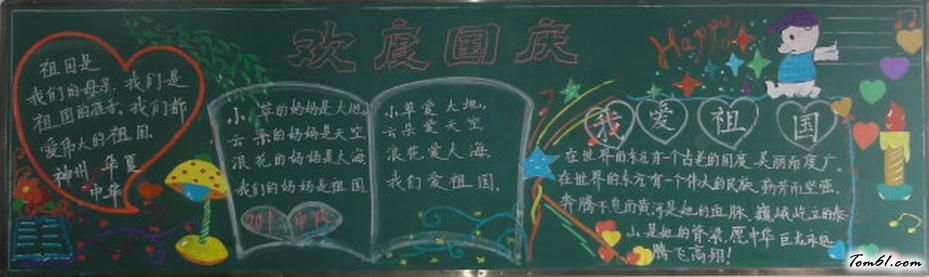 欢度国庆
Happy
祖国是
我们的母亲,我们是
祖国的孩子。我们都
爱伟大的祖国.
神州 华夏
中华
小草的妈妈是大地,
云朵的妈妈是天空,
浪花的妈妈是大海,
我们的妈妈是祖国.
小草爱大地,
云朵爱天空,
浪花爱大海,
我们爱祖国.
我爱祖国
在世界的东方有一个古老的国度,美丽而宽广,
在世界的东方有一个伟大的民族,勤劳而坚强,
奔腾不息的黄河是她的血脉,巍峨屹立的泰
山是她的脊梁,愿中华巨龙永远
腾飞高翔!
Tom61.com